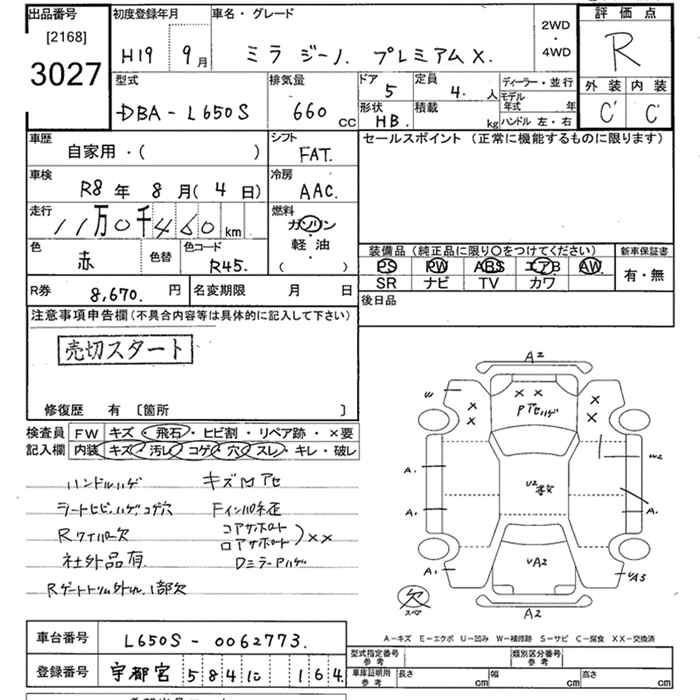 出品番号
[2168]
3027
初度登録年月
H19 9月
車名・グレード
ミラ ジーノ. プレミアムX.
2WD
・
4WD
評価点
R
外装 内装
C' C'
型式
DBA-L650S
排気量
660 CC
ドア 5
定員 4. 人
形状 HB.
積載 kg
ディーラー・並行
モデル年式 年
ハンドル 左・右
車歴
自家用・( )
シフト
FAT.
車検
R8年 8月( 4 日)
冷房
AAC.
走行
11万0千460 km
燃料
ガソリン
・
軽油
( )
色
赤
色替
色コード
R45.
R券 8,670. 円
名変期限 月 日
セールスポイント (正常に機能するものに限ります)
装備品 (純正品に限り〇をつけてください)
PS PW ABS エアB AW
SR ナビ TV カワ
新車保証書
有・無
後日品
注意事項申告欄(不具合内容等は具体的に記入して下さい)
売切スタート
修復歴 有 〔箇所 〕
検査員記入欄
FW キズ・飛石・ヒビ割・リペア跡・×要
内装 キズ・汚レ・コゲ・穴・スレ・キレ・破レ
ハンドルハゲ
シートヒビハゲコゲ穴
Rワイパ欠
社外品有
コアサポート
ロアサポート
××
Dミラーアハゲ
A2
W
× ×
× ×
× ×
A.
A.
U2
W2
A.
A.
UA2
UA5
A2
欠
スペア
A－キズ E－エクボ U－凹み W－補修跡 S－サビ C－腐食 XX－交換済
車台番号 L650S-0062773.
登録番号 宇都宮 584 に 164
型式指定番号
参考
類別区分番号
参考
車庫証明用
参考
長さ cm
幅 cm
高さ cm